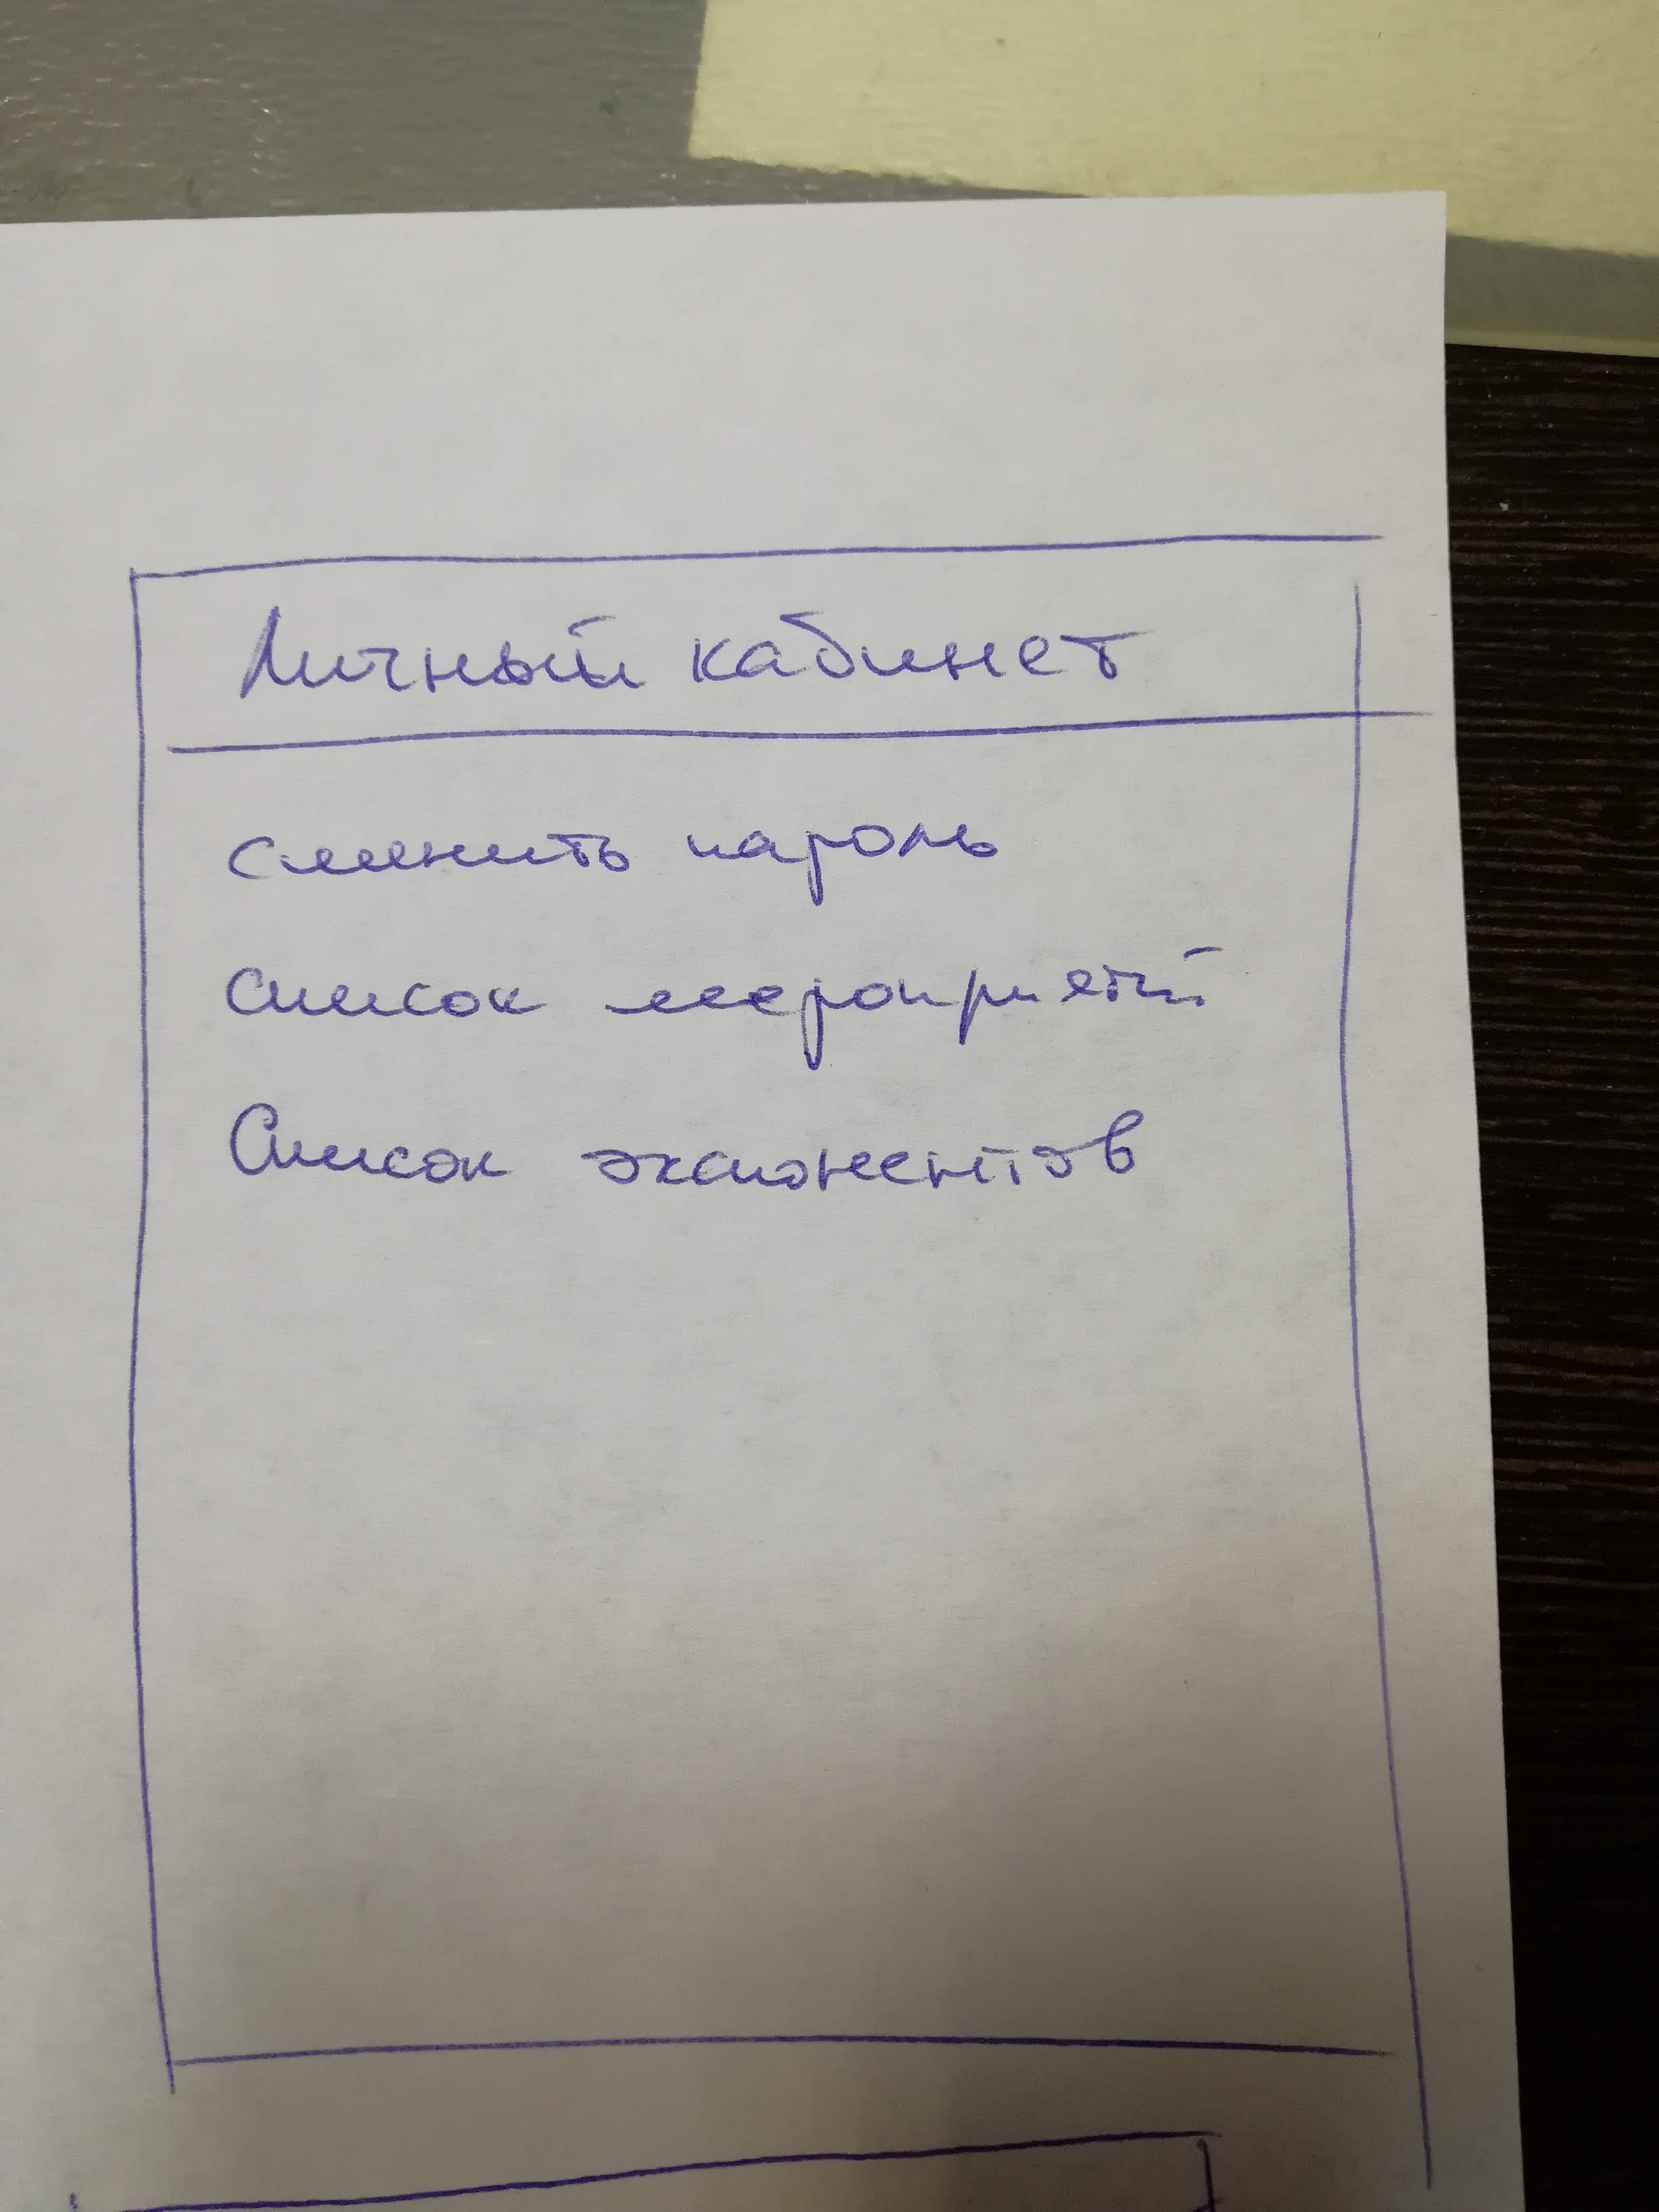 Личный кабинет
сменить пароль
список мероприятий
Список экспонентов